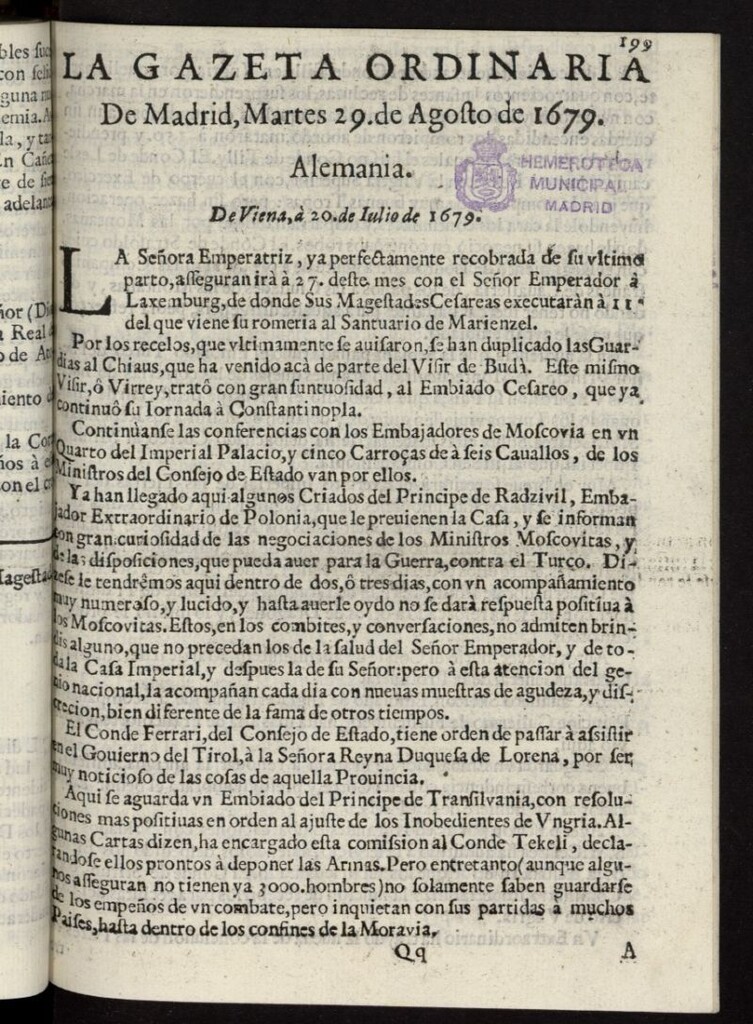 199
LA GAZETA ORDINARIA
De Madrid, Martes 29. de Agoſto de 1679.
Alemania.
HEMEROTECA
MUNICIPAL
MADRID
De Viena, à 20. de Iulio de 1679.
LA Señora Emperatriz, ya perfectamente recobrada de ſu vltimo
parto, aſſeguran irà à 27. deſte mes con el Señor Emperador à
Laxemburg, de donde Sus Mageſtades Ceſareas executaràn à 11
del que viene ſu romeria al Santuario de Marienzel.
Por los recelos, que vltimamente ſe auiſaron, ſe han duplicado las Guar-
dias al Chiaus, que ha venido acà de parte del Viſir de Budà. Eſte miſmo
Viſir, ô Virrey, tratô con gran ſuntuoſidad, al Embiado Ceſareo, que ya
continuô ſu Iornada à Conſtantinopla.
Continùanſe las conferencias con los Embajadores de Moſcovia en vn
Quarto del Imperial Palacio, y cinco Carroças de à ſeis Cauallos, de los
Miniſtros del Conſejo de Eſtado van por ellos.
Ya han llegado aqui algunos Criados del Principe de Radzivil, Emba-
jador Extraordinario de Polonia, que le preuienen la Caſa, y ſe informan
con gran curioſidad de las negociaciones de los Miniſtros Moſcovitas, y
de las diſpoſiciones, que pueda auer para la Guerra, contra el Turco. Di-
zeſe le tendrêmos aqui dentro de dos, ô tres dias, con vn acompañamiento
muy numeroſo, y lucido, y haſta auerle oydo no ſe darà reſpueſta poſitiua à
los Moſcovitas. Eſtos, en los combites, y converſaciones, no admiten brin-
dis alguno, que no precedan los de la ſalud del Señor Emperador, y de to-
da la Caſa Imperial, y deſpues la de ſu Señor: pero à eſta atencion del ge-
nio nacional, la acompañan cada dia con nueuas mueſtras de agudeza, y diſ-
crecion, bien diferente de la fama de otros tiempos.
El Conde Ferrari, del Conſejo de Eſtado, tiene orden de paſſar à aſsiſtir
en el Gouierno del Tirol, à la Señora Reyna Duqueſa de Lorena, por ſer
muy noticioſo de las coſas de aquella Prouincia.
Aqui ſe aguarda vn Embiado del Principe de Tranſilvania, con reſolu-
ciones mas poſitiuas en orden al ajuſte de los Inobedientes de Vngria. Al-
gunas Cartas dizen, ha encargado eſta comiſsion al Conde Tekeli, decla-
randoſe ellos prontos à deponer las Armas. Pero entretanto (aunque algu-
nos aſſeguran no tienen ya 3000. hombres) no ſolamente ſaben guardarſe
de los empeños de vn combate, pero inquietan con ſus partidas à muchos
Paiſes, haſta dentro de los confines de la Moravia,
Qq A